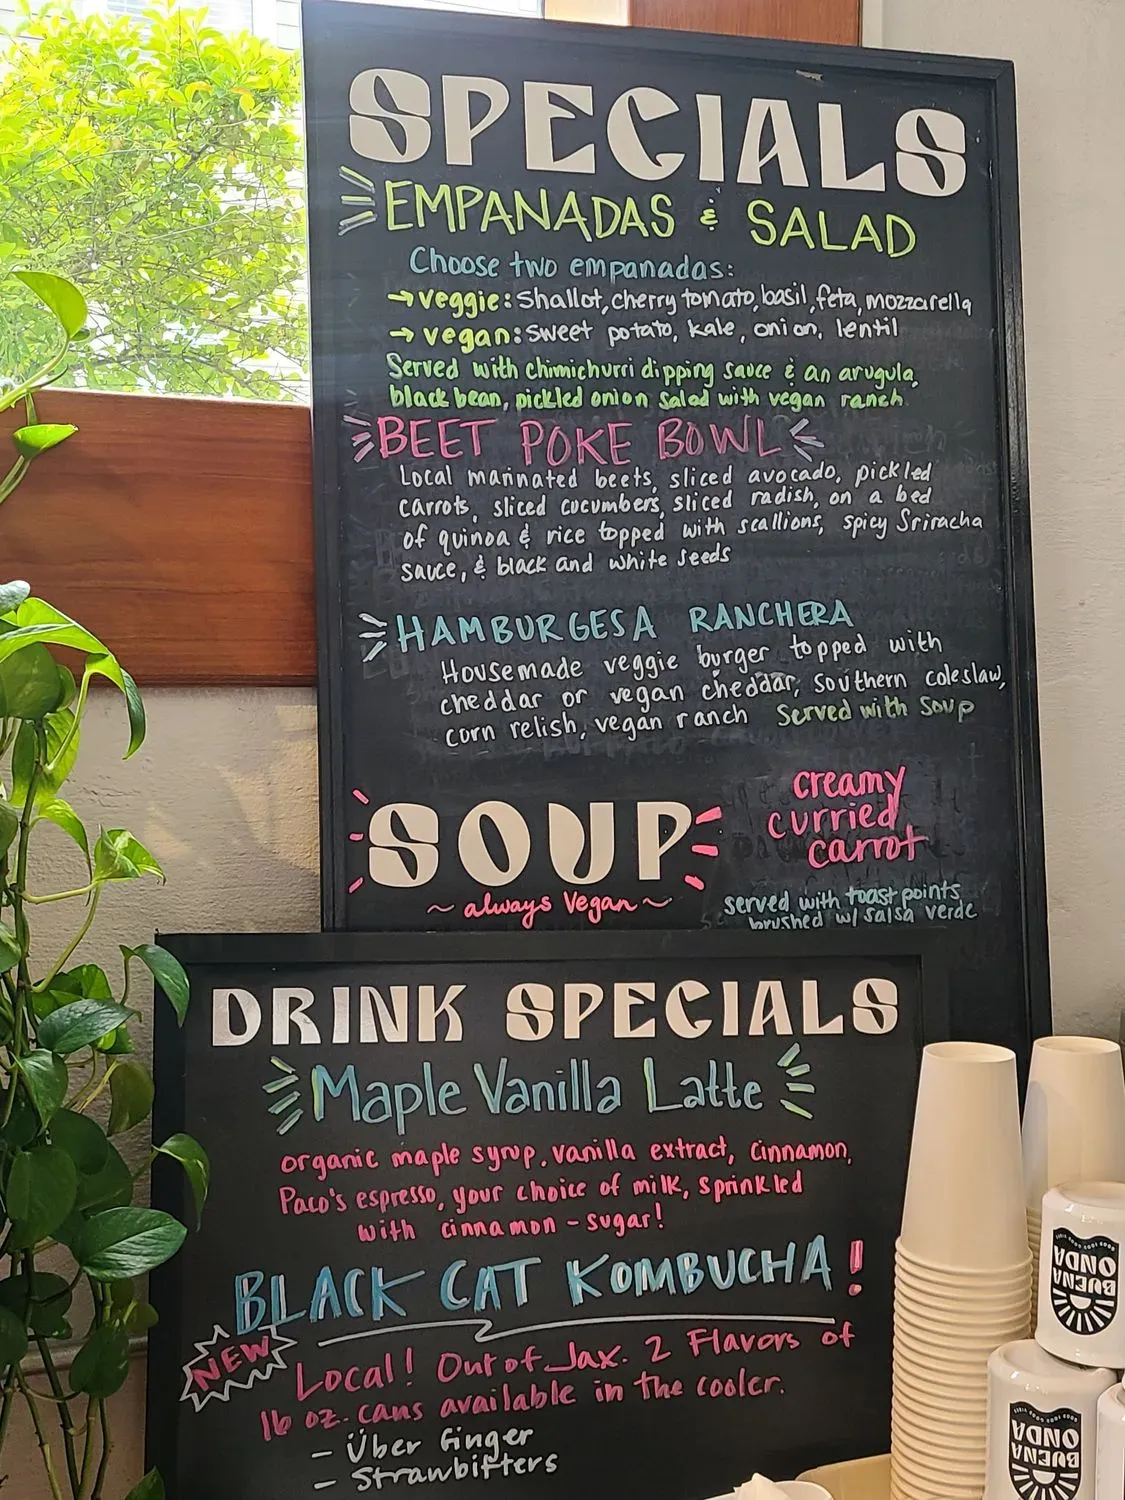 SPECIALS
EMPANADAS & SALAD
Choose two empanadas:
→ veggie: Shallot, cherry tomato, basil, feta, mozzarella
→ vegan: sweet potato, kale, onion, lentil
Served with chimichurri dipping sauce & an arugula,
black bean, pickled onion salad with vegan ranch
BEET POKE BOWL
Local marinated beets, sliced avocado, pickled
carrots, sliced cucumbers, sliced radish, on a bed
of quinoa & rice topped with scallions, spicy Sriracha
sauce, & black and white seeds
HAMBURGESA RANCHERA
Housemade veggie burger topped with
cheddar or vegan cheddar, southern coleslaw,
corn relish, vegan ranch Served with Soup
SOUP
~ always Vegan ~
creamy
curried
carrot
served with toast points
brushed w/ salsa verde
DRINK SPECIALS
Maple Vanilla Latte
organic maple syrup, vanilla extract, cinnamon,
Paco's espresso, your choice of milk, sprinkled
with cinnamon-sugar!
BLACK CAT KOMBUCHA!
NEW
Local! Out of Jax. 2 Flavors of
16 oz. cans available in the cooler.
- Über Ginger
- Strawbifters
BUENA
ONDA
BUENA
ONDA